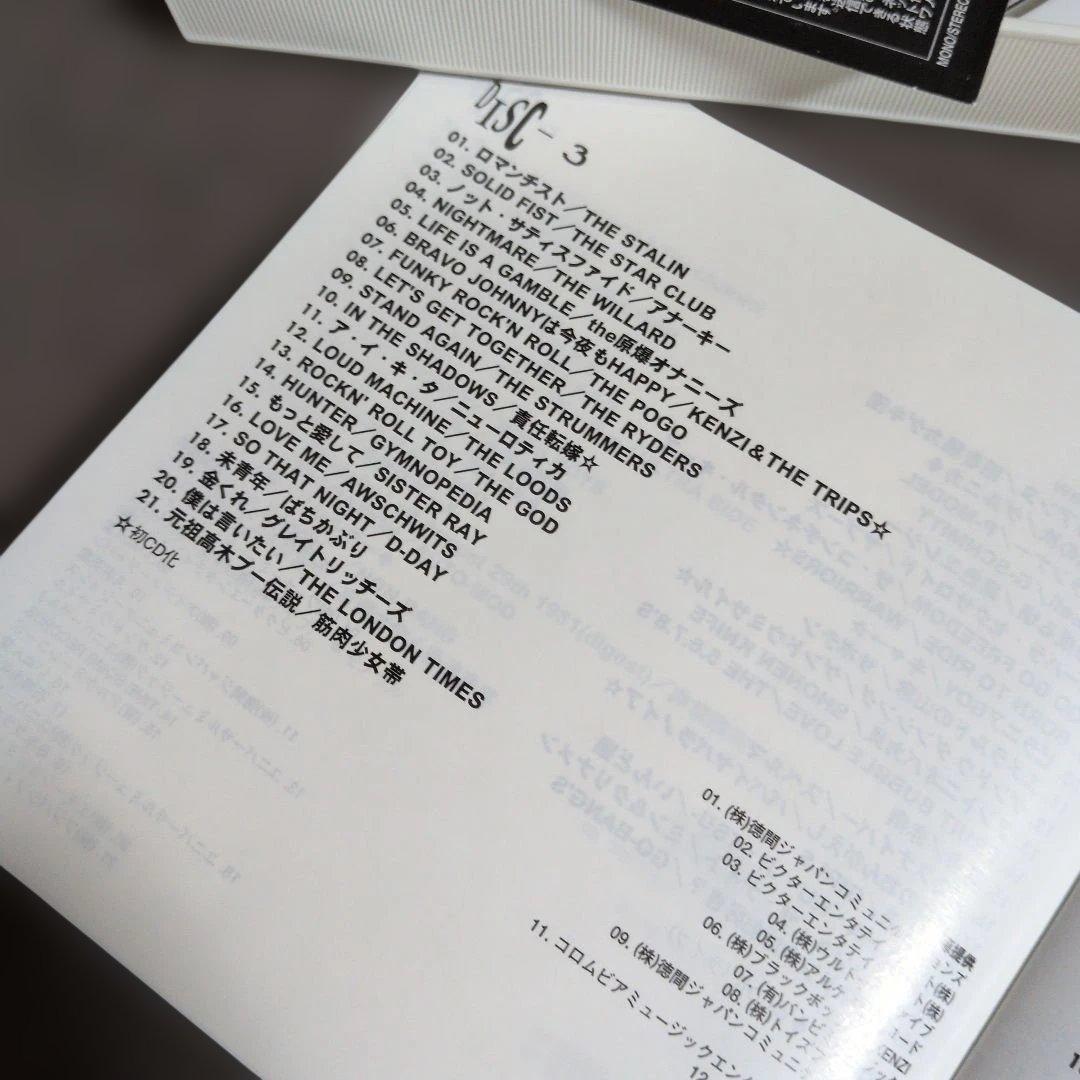 MONO/STEREO
DISC-3
01. ロマンチスト／THE STALIN
02. SOLID FIST／THE STAR CLUB
03. ノット・サティスファイド／アナーキー
04. NIGHTMARE／THE WILLARD
05. LIFE IS A GAMBLE／the原爆オナニーズ
06. BRAVO JOHNNYは今夜もHAPPY／KENZI＆THE TRIPS☆
07. FUNKY ROCK'N ROLL／THE POGO
08. LET'S GET TOGETHER／THE RYDERS
09. STAND AGAIN／THE STRUMMERS
10. IN THE SHADOWS／責任転嫁☆
11. ア・イ・キ・タ／ニューロティカ
12. LOUD MACHINE／THE LOODS
13. ROCKN' ROLL TOY／THE GOD
14. HUNTER／GYMNOPEDIA
15. もっと愛して／SISTER RAY
16. LOVE ME／AWSCHWITS
17. SO THAT NIGHT／D-DAY
18. 未青年／ばちかぶり
19. 金くれ／グレイトリッチーズ
20. 僕は言いたい／THE LONDON TIMES
21. 元祖高木ブー伝説／筋肉少女帯
☆初CD化
01. (株)徳間ジャパンコミュニ
02. ビクターエンタテイ
03. ビクターエンタテイ
04. (株)ウルト
05. (株)アルケ
06. (株)ブラックボッ
07. (有)バンビ
08. (株)トイズ
09. (株)徳間ジャパンコミュニ
11. コロムビアミュージックエン
12